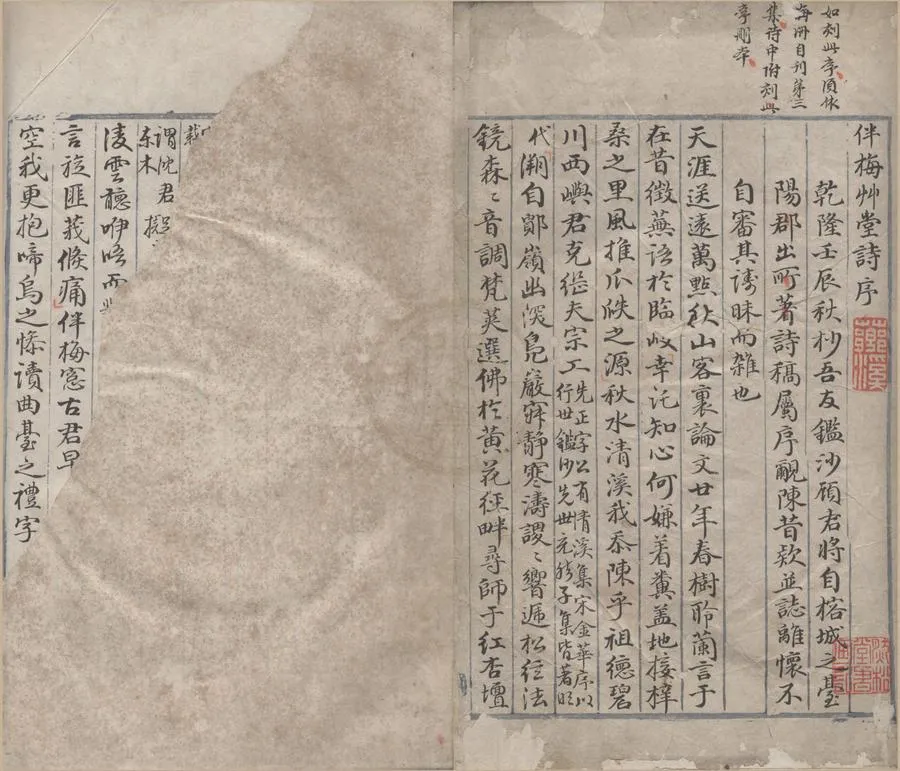 如刻此序須依
每冊自刊第三
集詩中附刻此
序刪本
伴梅艸堂詩序
乾隆壬辰秋杪吾友鑑沙顧君將自榕城之臺
陽郡出所著詩稿屬序覼陳昔欵並誌離懷不
自審其譸昧而雜也
天涯送遠萬點秋山客裏論文廿年春樹聆蘭言于
在昔徵蕪語於臨歧幸託知心何嫌着糞蓋地接梓
桑之里風推爪瓞之源秋水清溪我忝陳乎祖德碧
川西嶼君克纘夫宗工
先正字公有清溪集宋金華序以
行世鑑沙先世子集皆著
代溯自鄮嶺出深鳧巖寂靜寒濤謖〻響遞松徑法
鏡森〻音調梵筴選佛於黃花徑畔尋師于紅杏壇
載
謂沈君擬
东木
淩雲聽咿唔而
言旋匪莪倏痛伴梅窓古君早
空我更抱啼烏之慘讀曲臺之禮字